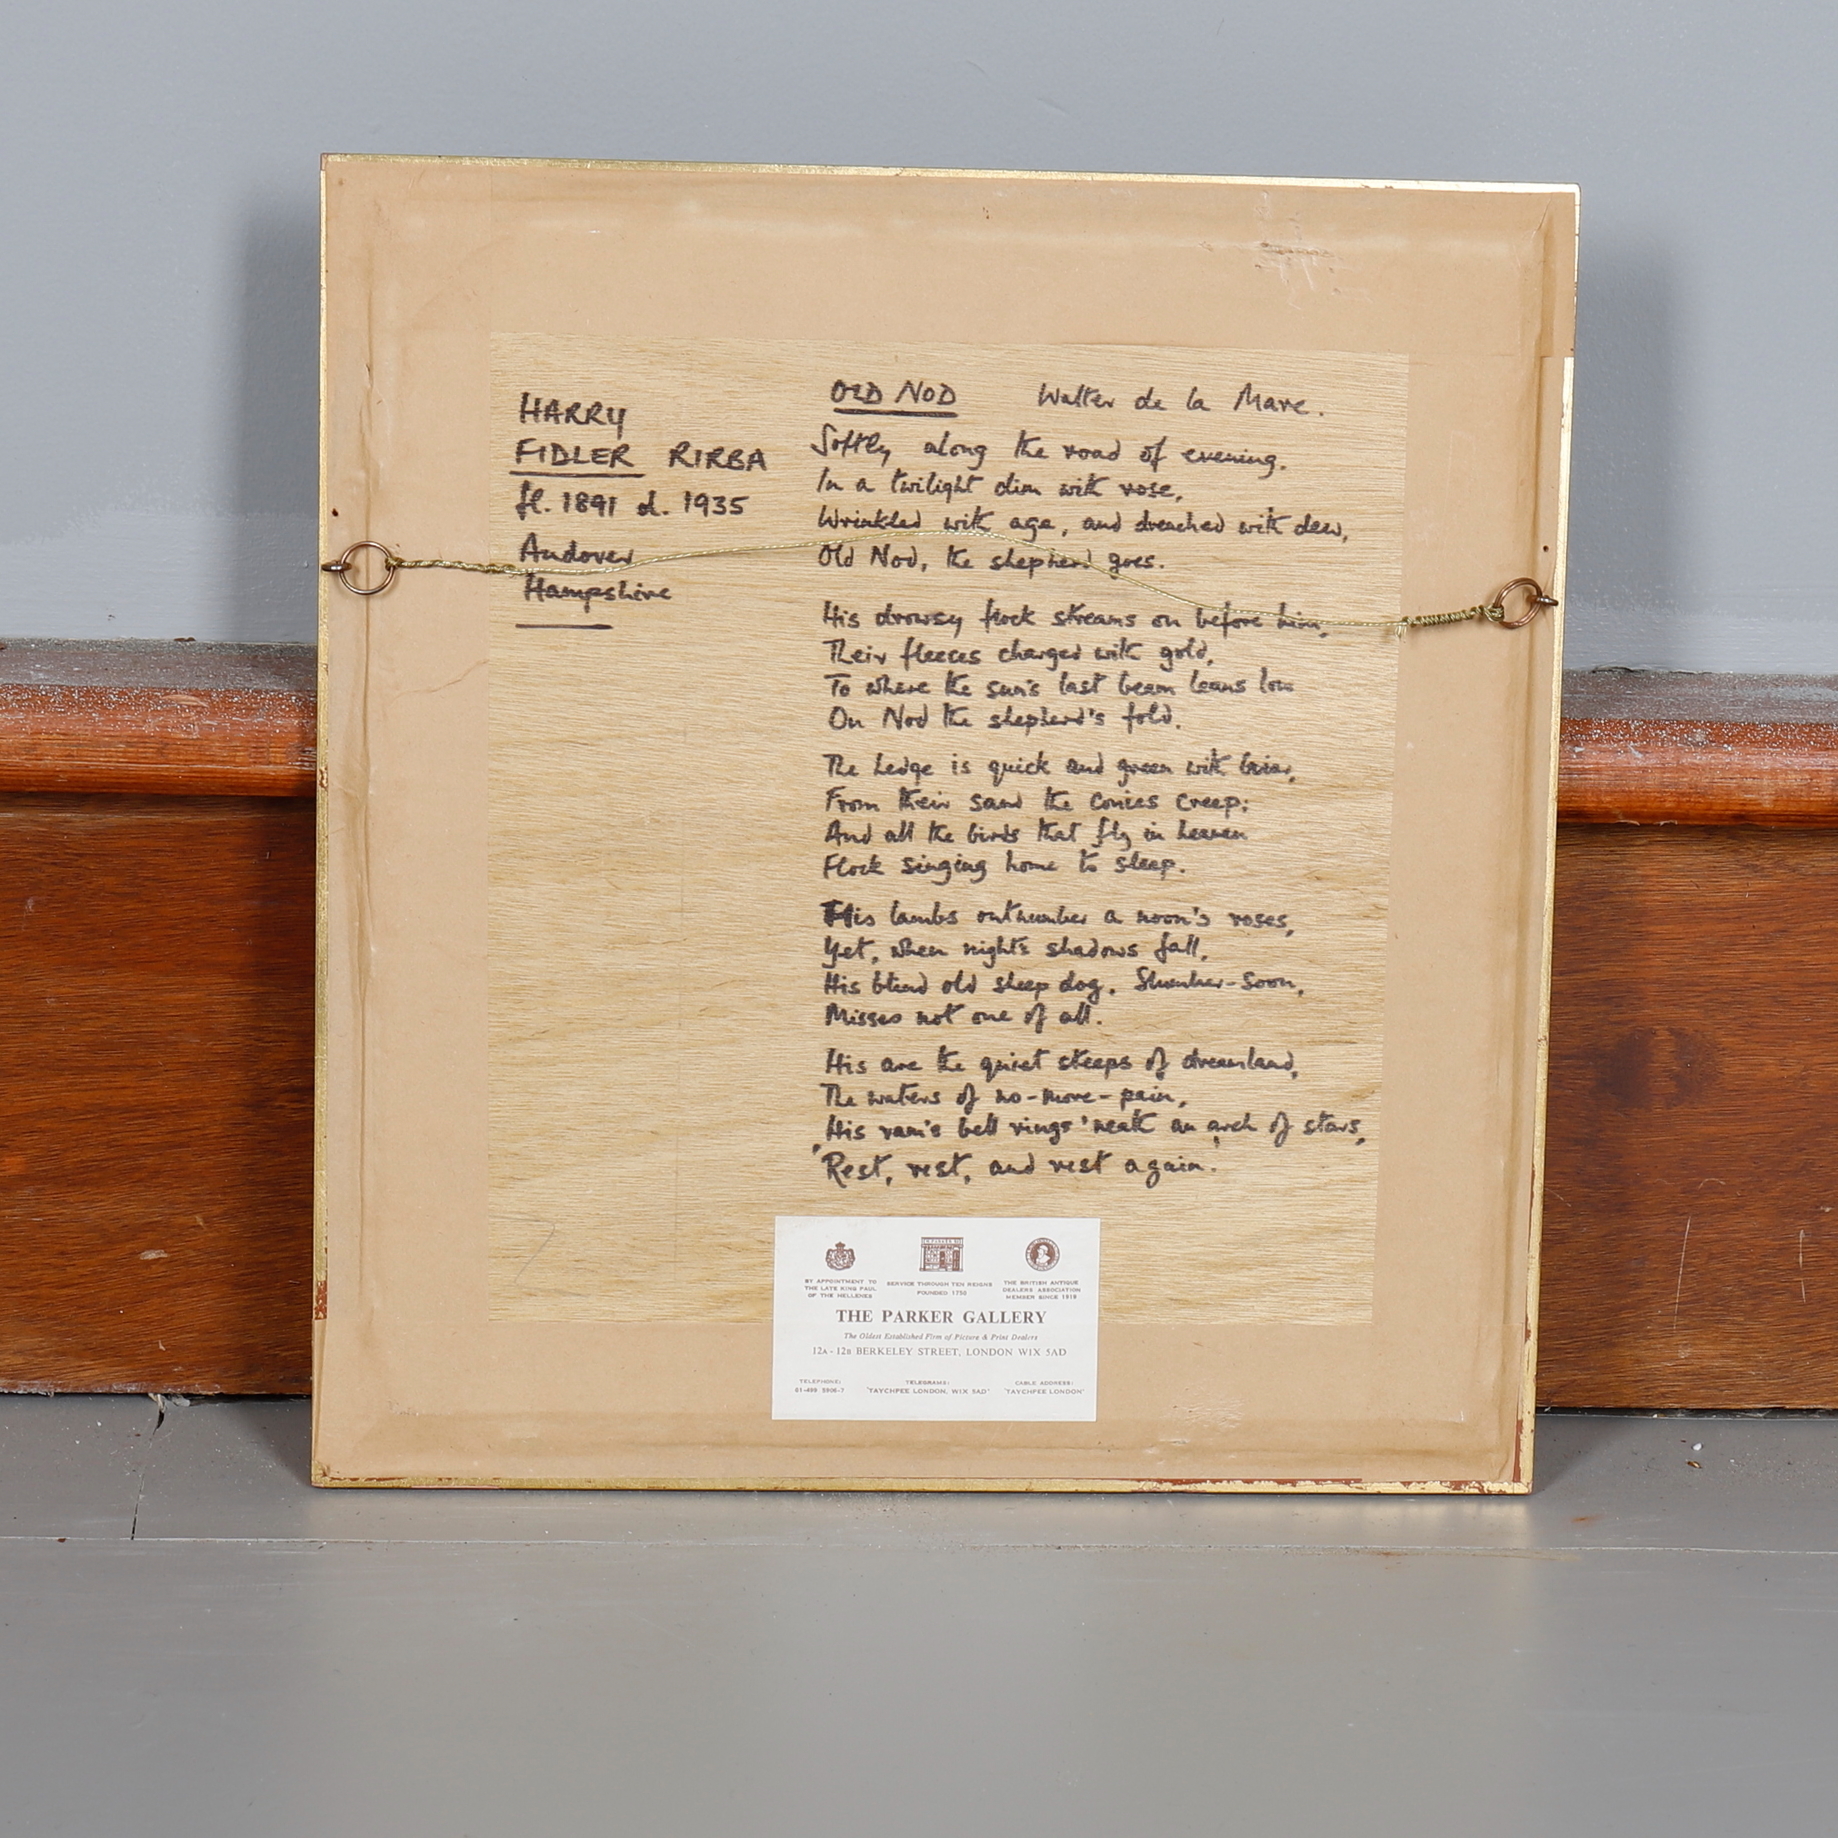 HARRY
FIDLER RIRBA
fl. 1891 d. 1935
Andover
Hampshire
OLD NOD Walter de la Mare.
Softly along the road of evening.
In a twilight dim with rose,
Wrinkled with age, and drenched with dew,
Old Nod, the shepherd goes.
His drowsy flock streams on before him,
Their fleeces charged with gold,
To where the sun's last beam leans low
On Nod the shepherd's fold.
The hedge is quick and green with briar,
From their sand the conies creep;
And all the birds that fly in heaven
Flock singing home to sleep.
His lambs outnumber a noon's roses,
Yet, when night's shadows fall,
His blind old sheep dog, Slumber-Soon,
Misses not one of all.
His are the quiet steeps of dreamland,
The waters of no-more-pain,
His ram's bell rings 'neath an arch of stars,
'Rest, rest, and rest again.'
BY APPOINTMENT TO
THE LATE KING PAUL
OF THE HELLENES
SERVICE THROUGH TEN REIGNS
FOUNDED 1750
THE BRITISH ANTIQUE
DEALERS ASSOCIATION
MEMBER SINCE 1918
THE PARKER GALLERY
The Oldest Established Firm of Picture & Print Dealers
12A - 12B BERKELEY STREET, LONDON W1X 5AD
TELEPHONE:
01-499 5906-7
TELEGRAMS:
"TAYCHPEE LONDON, W1X 5AD"
CABLE ADDRESS:
"TAYCHPEE LONDON"